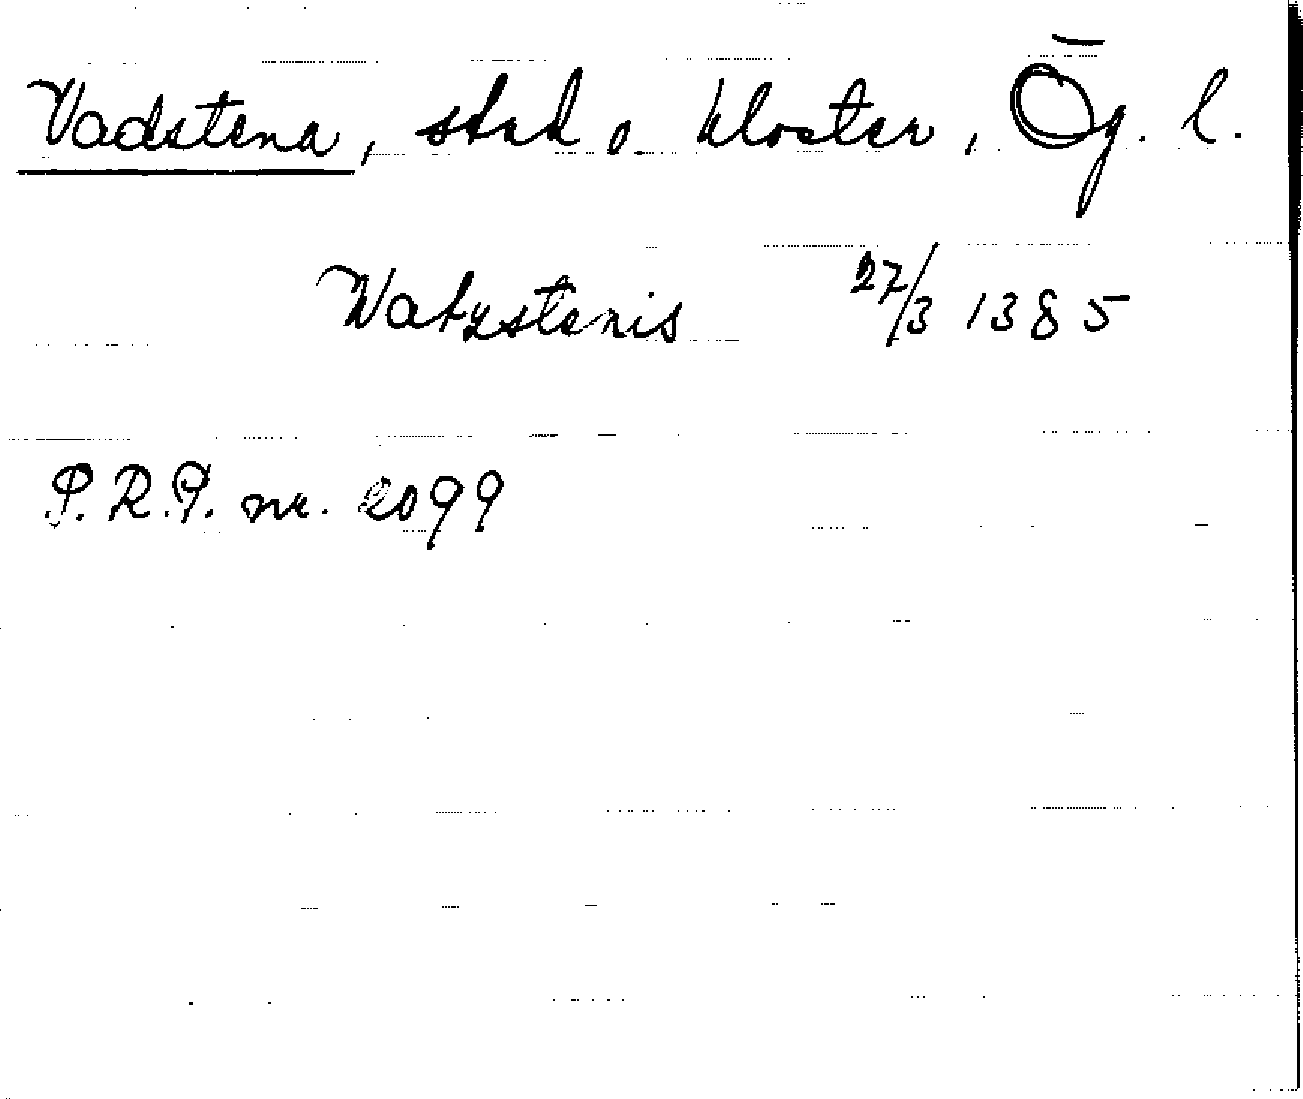 Vadstena, stad o kloster, Ög. l.
Watzstenis 27/3 1385
P.R.P. nr. 2099